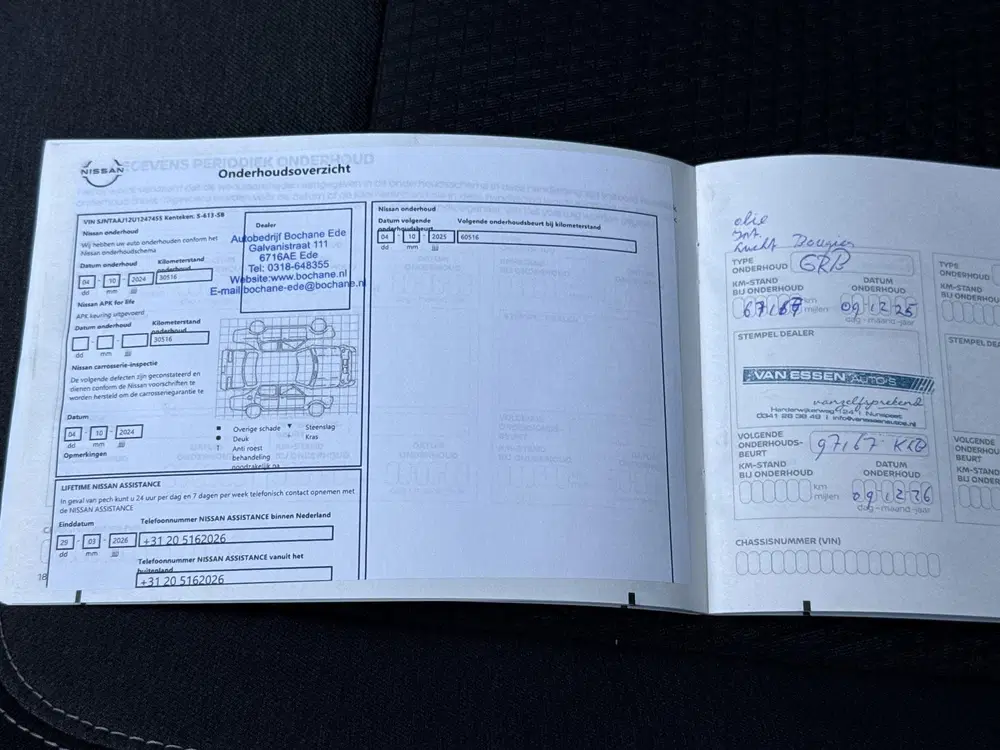 NISSAN
GEGEVENS PERIODIEK ONDERHOUD
Onderhoudsoverzicht
VIN SJNTAAJ12U1247455 Kenteken: S-613-SB
Nissan onderhoud
Wij hebben uw auto onderhouden conform het
Nissan onderhoudschema
Datum onderhoud
Kilometerstand
onderhoud
04 - 10 - 2024
30516
dd mm jjjj
Nissan APK for life
APK keuring uitgevoerd
Datum onderhoud
Kilometerstand
onderhoud
30516
dd mm jjjj
Nissan carrosserie-inspectie
De volgende defecten zijn geconstateerd en
dienen conform de Nissan voorschriften te
worden hersteld om de carrosseriegarantie te
Datum
04 - 10 - 2024
dd mm jjjj
Opmerkingen
Dealer
Autobedrijf Bochane Ede
Galvanistraat 111
6716AE Ede
Tel: 0318-648355
Website:www.bochane.nl
E-mail:bochane-ede@bochane.nl
Overige schade
Steenslag
Deuk
Kras
T Anti roest
behandeling
noodzakelijk na
LIFETIME NISSAN ASSISTANCE
In geval van pech kunt u 24 uur per dag en 7 dagen per week telefonisch contact opnemen met
de NISSAN ASSISTANCE
Einddatum
29 - 03 - 2026
dd mm jjjj
Telefoonnummer NISSAN ASSISTANCE binnen Nederland
+31 20 5162026
Telefoonnummer NISSAN ASSISTANCE vanuit het
buitenland
+31 20 5162026
18
Nissan onderhoud
Datum volgende
onderhoudsbeurt
Volgende onderhoudsbeurt bij kilometerstand
04 - 10 - 2025
60516
dd mm jjjj
olie
Int.
Lucht Bougies
TYPE
ONDERHOUD
GRB
KM-STAND
BIJ ONDERHOUD
DATUM
ONDERHOUD
67167
km
mijlen
09 12 25
dag-maand-jaar
STEMPEL DEALER
VAN ESSEN AUTO'S
vanzelfsprekend
Harderwijkerweg 124 | Nunspeet
0341 28 38 49 | info@vanessenautos.nl
VOLGENDE
ONDERHOUDS-
BEURT
97167
KM-STAND
BIJ ONDERHOUD
DATUM
ONDERHOUD
km
mijlen
09 12 26
dag-maand-jaar
CHASSISNUMMER (VIN)
TYPE
ONDERHOUD
KM-STAND
BIJ ONDERHOU
STEMPEL DEAL
VOLGENDE
ONDERHOUDS-
BEURT
KM-STAND
BIJ ONDERH